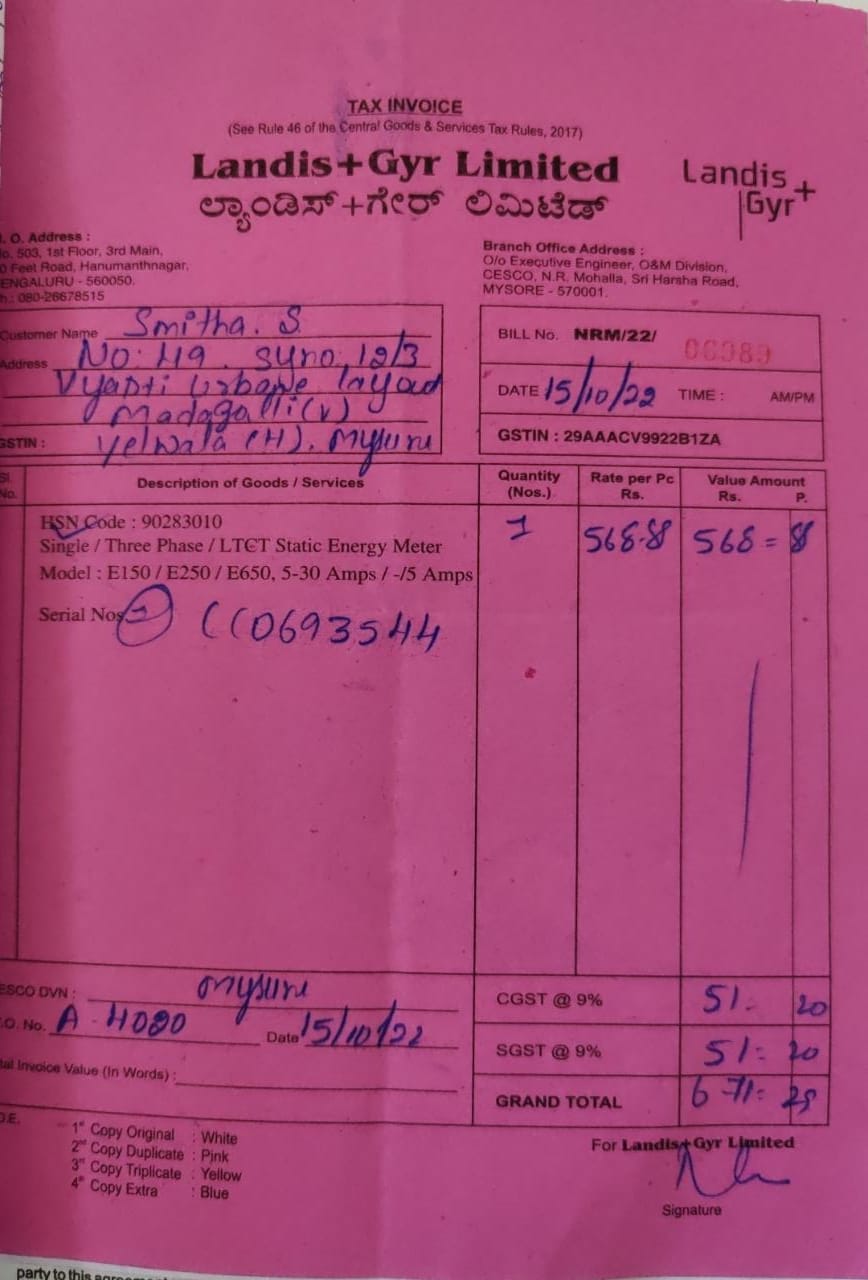 TAX INVOICE
(See Rule 46 of the Central Goods & Services Tax Rules, 2017)
Landis+Gyr Limited
ಲ್ಯಾಂಡಿಸ್+ಗೇರ್ ಲಿಮಿಟೆಡ್
Landis
Gyr+
. O. Address :
o. 503, 1st Floor, 3rd Main,
0 Feet Road, Hanumanthnagar,
ENGALURU - 560050.
h.: 080-26678515
Branch Office Address :
O/o Executive Engineer, O&M Division,
CESCO, N.R. Mohalla, Sri Harsha Road,
MYSORE - 570001.
Customer Name Smitha. S
Address NO: 49. Syno, 12/3
Vyapti layout
Madagalli (V)
GSTIN : Yelwala (H). Mysuru
BILL No. NRM/22/ 06989
DATE 15/10/22 TIME : AM/PM
GSTIN : 29AAACV9922B1ZA
Sl. No. Description of Goods / Services Quantity (Nos.) Rate per Pc Rs. Value Amount Rs. P.
HSN Code : 90283010 1 568.88 568 = 88
Single / Three Phase / LTCT Static Energy Meter
Model : E150 / E250 / E650, 5-30 Amps / -/5 Amps
Serial Nos CC0693544
ESCO DVN : Mysuru
.O. No. A - 4080 Date 15/10/22
tal Invoice Value (In Words) :
CGST @ 9% 51- 20
SGST @ 9% 51= 20
GRAND TOTAL 671= 28
O.E.
1st Copy Original : White
2nd Copy Duplicate : Pink
3rd Copy Triplicate : Yellow
4th Copy Extra : Blue
For Landis+Gyr Limited
Signature
party to this